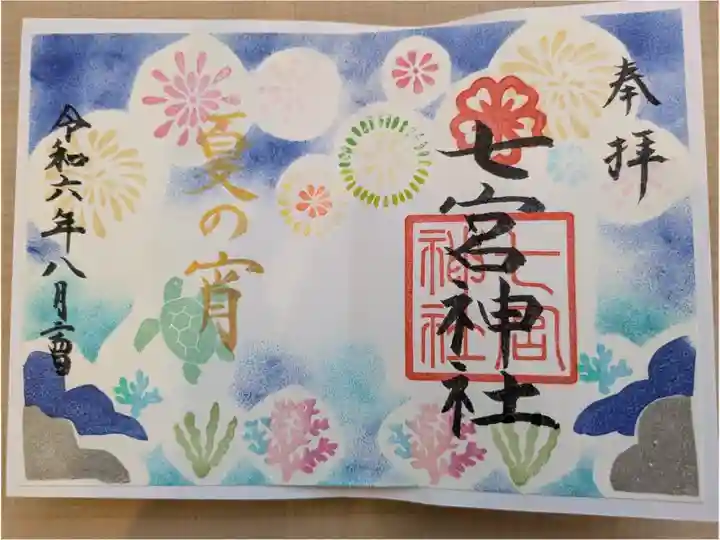 奉拝
七宮神社
七宮
神社
夏の宵
令和六年八月二四日